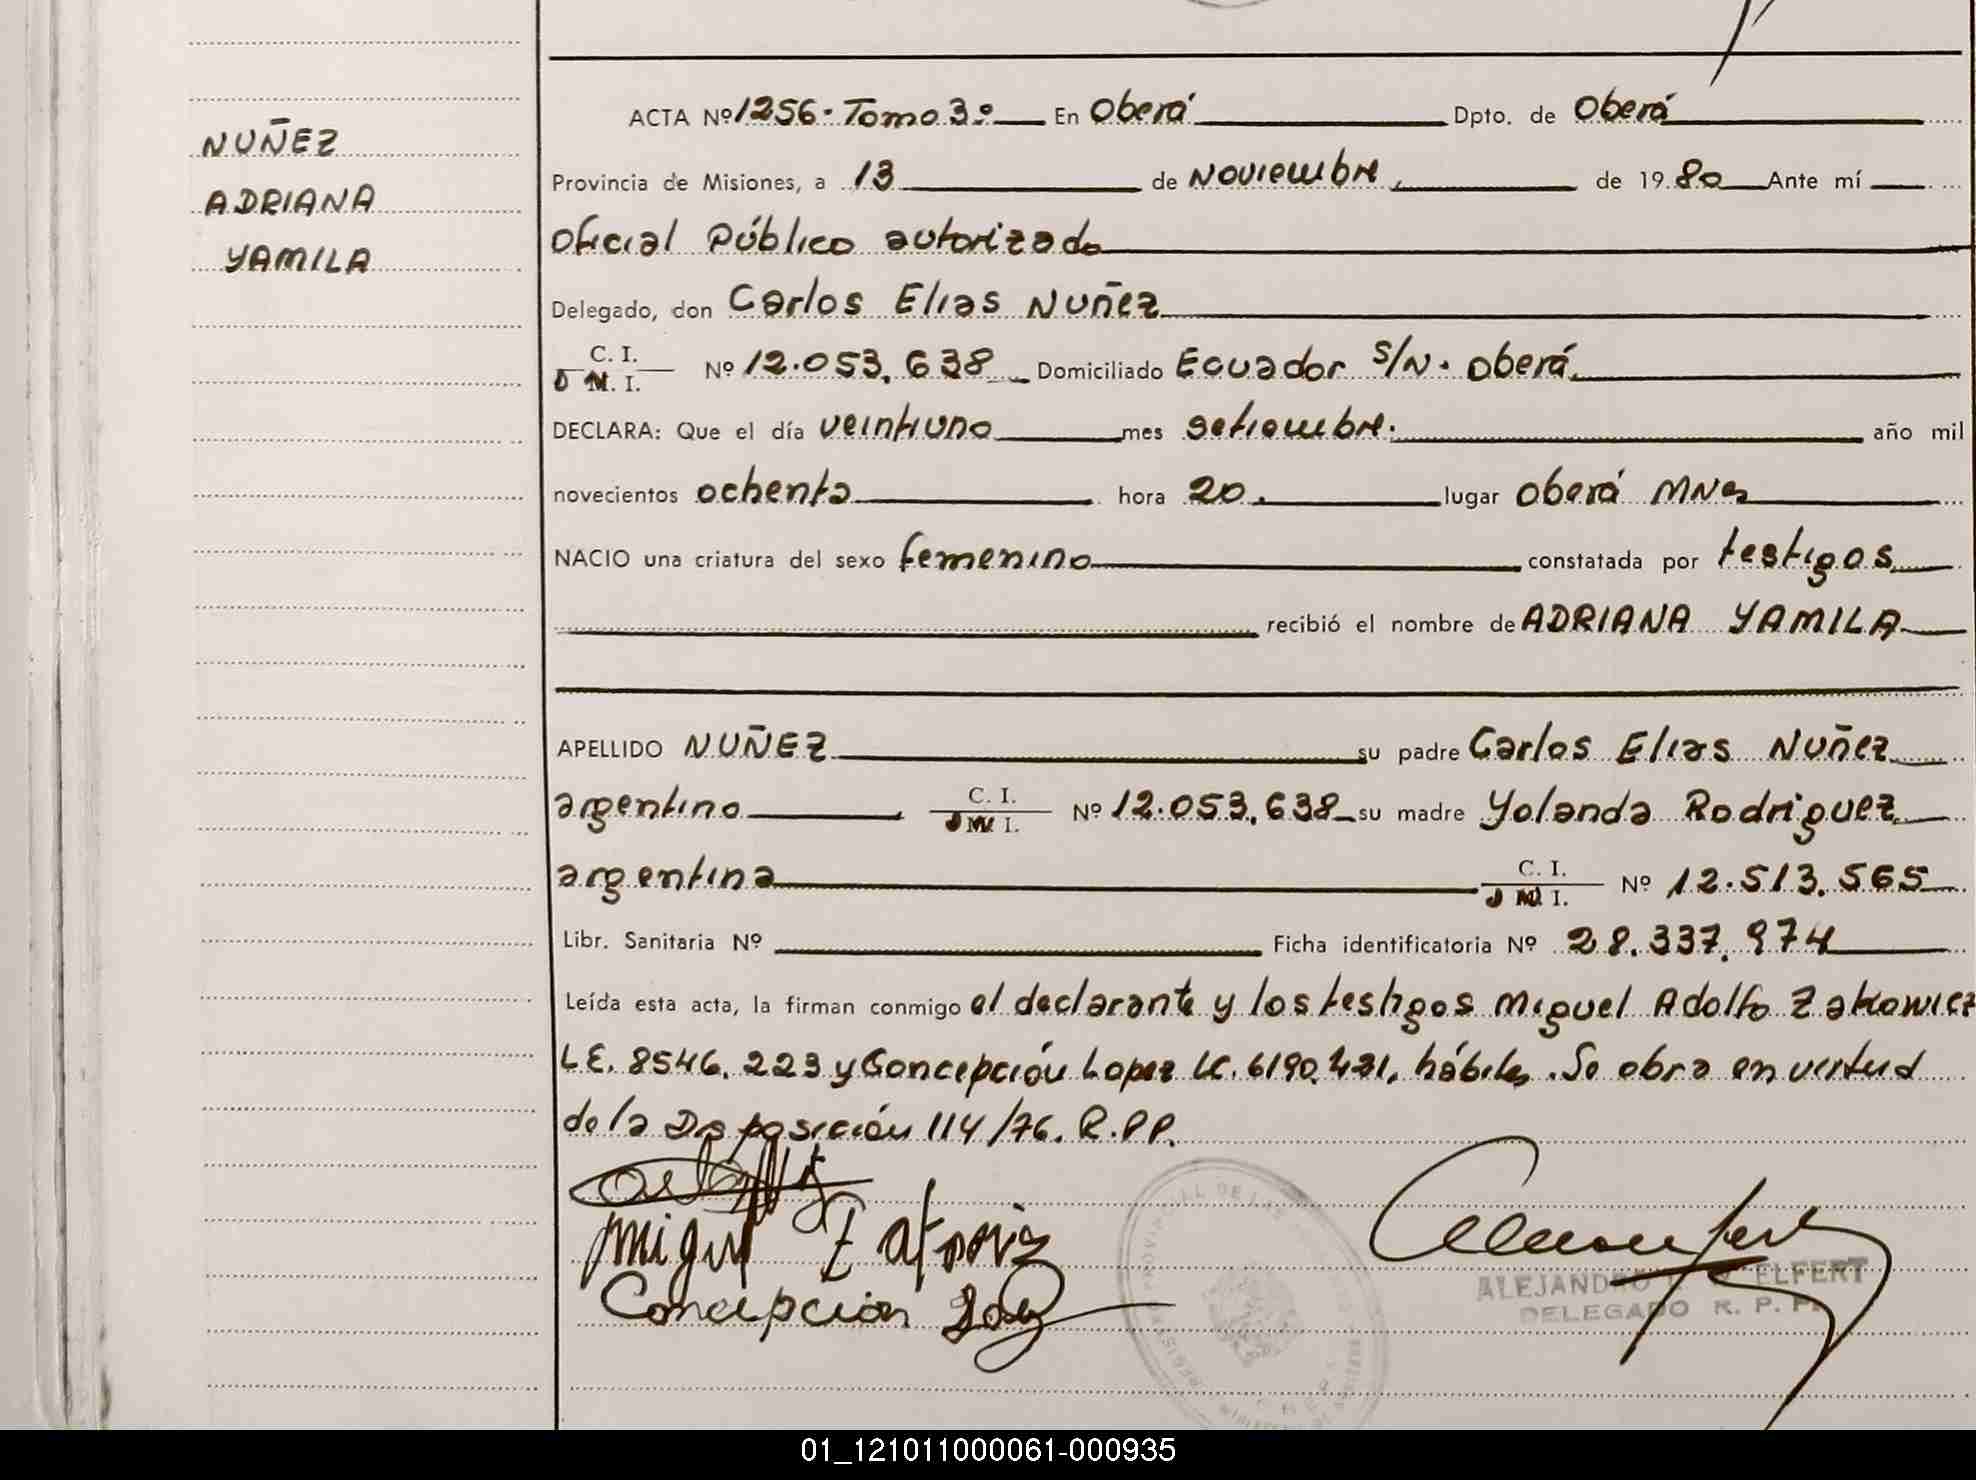 NUÑEZ
ADRIANA
YAMILA
ACTA Nº 1256. Tomo 3º En Oberá Dpto. de Oberá
Provincia de Misiones, a 13 de Noviembre, de 1980 Ante mí
Oficial Público autorizado
Delegado, don Carlos Elias Nuñez
C. I.
D N. I. Nº 12.053.638 Domiciliado Ecuador S/N. Oberá.
DECLARA: Que el día veintiuno mes setiembre. año mil
novecientos ochenta hora 20. lugar Oberá Mnes
NACIO una criatura del sexo femenino constatada por testigos
recibió el nombre de ADRIANA YAMILA
APELLIDO NUÑEZ su padre Carlos Elias Nuñez
argentino C. I. D N. I. Nº 12.053.638 su madre Yolanda Rodriguez
argentina C. I. D N. I. Nº 12.513.565
Libr. Sanitaria Nº Ficha identificatoria Nº 28.337.974
Leída esta acta, la firman conmigo el declarante y los testigos Miguel Adolfo Zakowicz
LE. 8546.223 y Concepción Lopez LC. 6190.421, hábiles. Se obra en virtud
de la Disposición 114/76. R.PP.
Miguel
Concepcion
ALEJANDRO ELFERT
DELEGADO R. P. P.
01_121011000061-000935